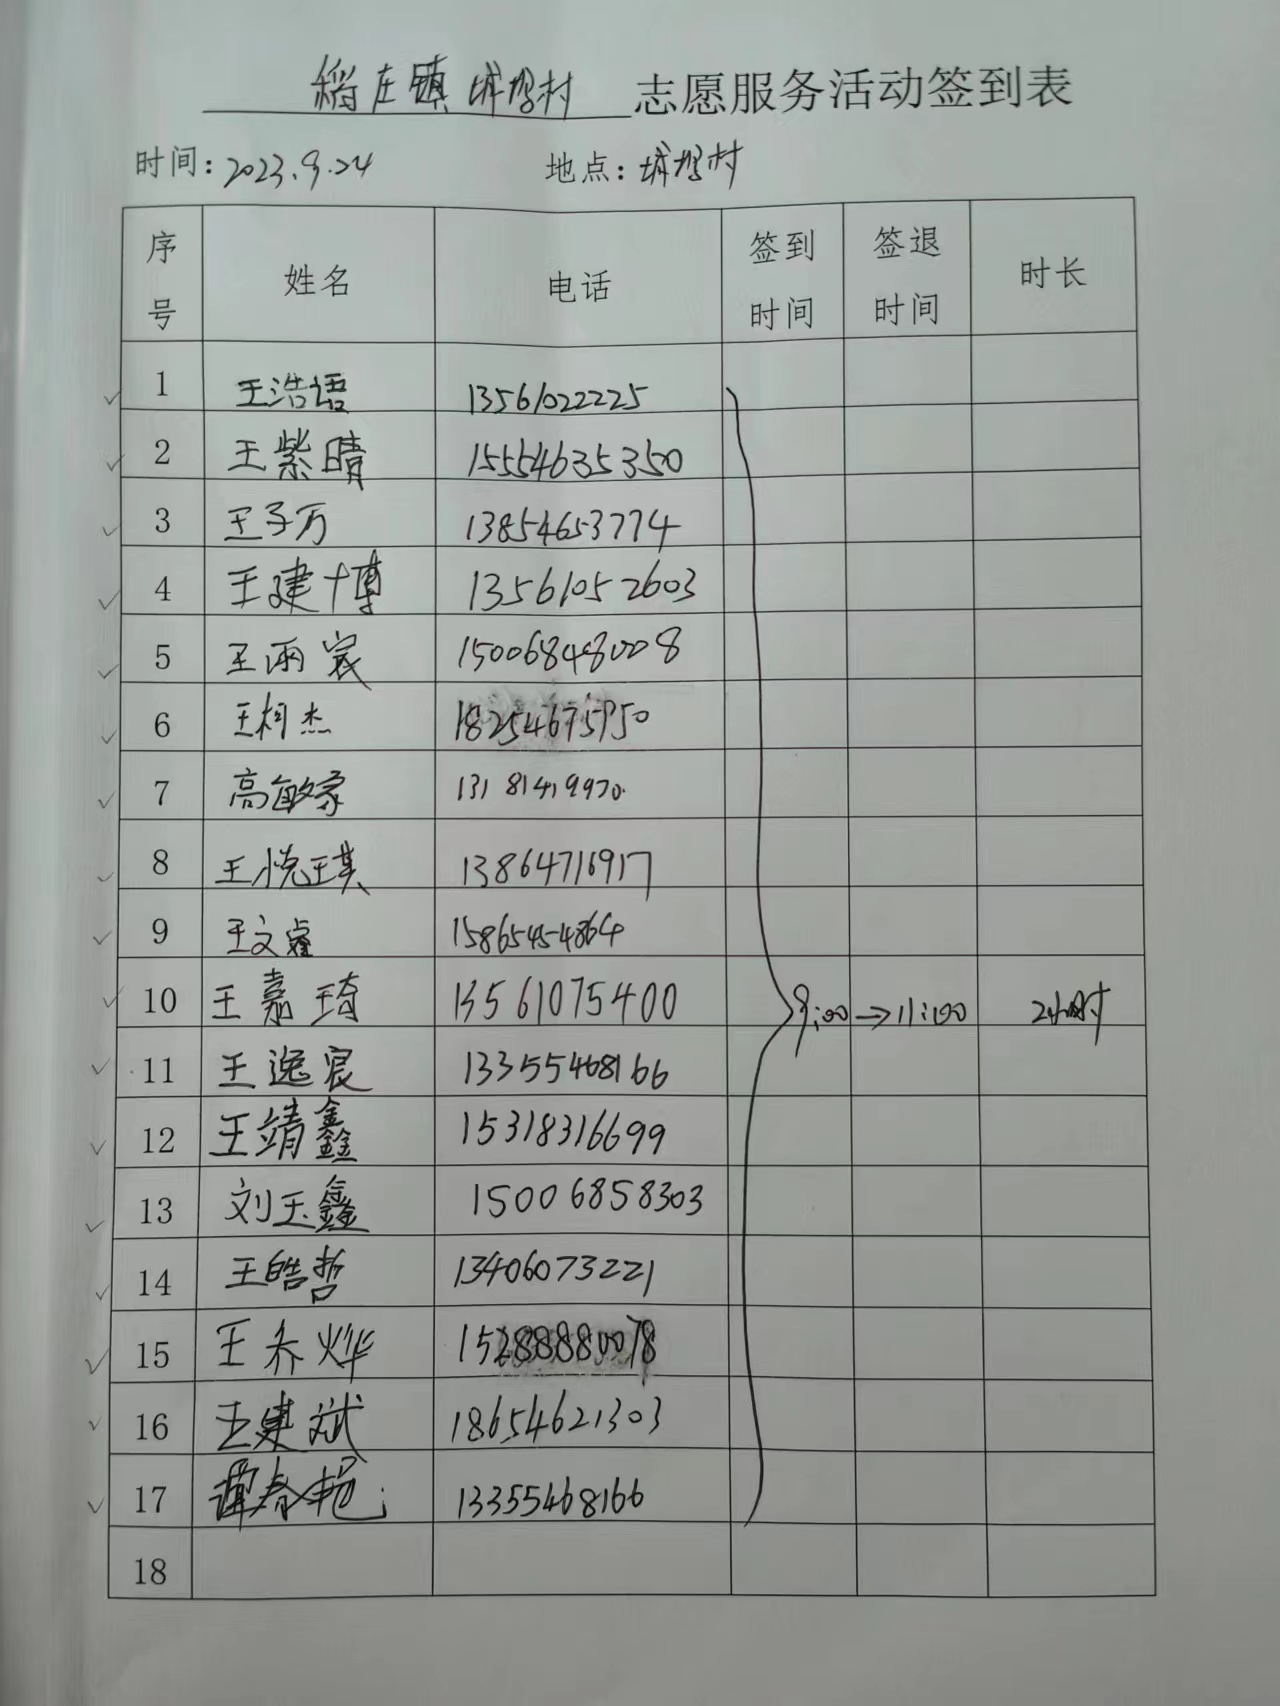 稻庄镇 城坞村 志愿服务活动签到表
时间：2023.9.24 地点：城坞村
序号 姓名 电话 签到时间 签退时间 时长
1 王浩语 13561022225
2 王紫晴 15554635350
3 王子万 13854653774
4 王建博 13561052603
5 王雨宸 15006848008
6 王柯杰 18254675950
7 高敏家 13181419970
8 王悦琪 13864716917
9 王文睿 15865454864
10 王嘉琦 13561075400 9:00→11:00 2小时
11 王逸宸 13355468166
12 王靖鑫 15318316699
13 刘玉鑫 15006858303
14 王皓哲 13406073221
15 王乔烨 15288880078
16 王建斌 18654621303
17 谭春艳 13355468166
18